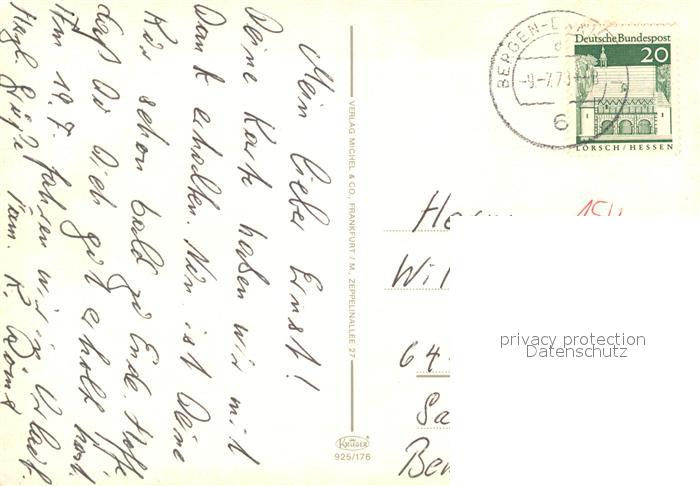 Mein lieber Ernst!
Deine Karte haben wir mit
Dank erhalten. Nun ist Deine
Kur schon bald zu Ende. Hoffe
daß Du Dich gut erholt hast.
Am 19.7. fahren wir in Urlaub.
Herzl. Grüße Fam. K.
VERLAG MICHEL & CO., FRANKFURT / M., ZEPPELINALLEE 27
KRÜGER
925/176
BERGEN-EN
-9.-7.7
6
Deutsche Bundespost
20
LORSCH / HESSEN
He
Wil
64
Sa
Ber
privacy protection
Datenschutz